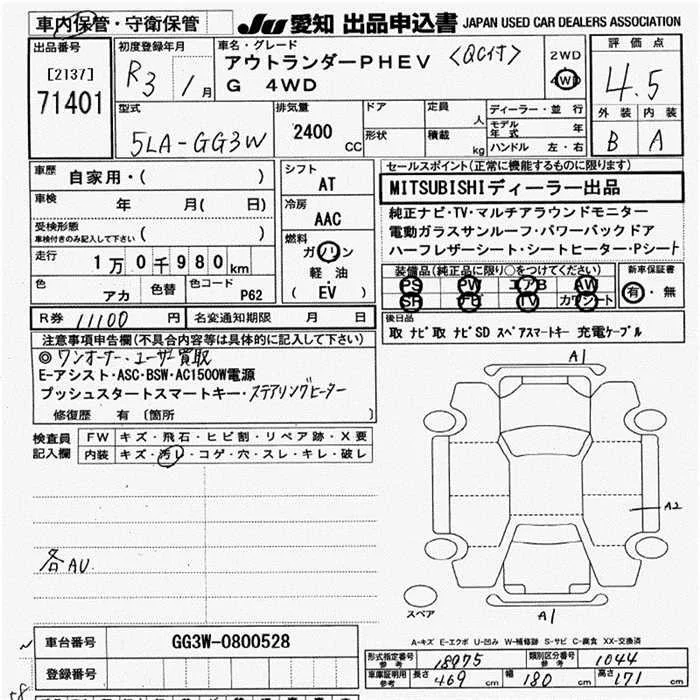 車内保管・守衛保管
JU 愛知 出品申込書 JAPAN USED CAR DEALERS ASSOCIATION
出品番号 [2137] 71401
初度登録年月 R3 / 1月
車名・グレード アウトランダーPHEV <QC付>
G 4WD
2WD 4WD
評価点 4.5
外装 内装
B A
型式 5LA-GG3W
排気量 2400 CC
ドア 形状
定員 人
積載 kg
ディーラー・並行
モデル年式 年
ハンドル 左・右
車歴 自家用・( )
車検 年 月( 日)
受検形態 車検付きのみ記入して下さい ( )
走行 1万0千980km
色 アカ 色替 色コード P62
シフト AT
冷房 AAC
燃料 ガソリン 軽油・( EV )
セールスポイント(正常に機能するものに限ります)
MITSUBISHIディーラー出品
純正ナビ・TV・マルチアラウンドモニター
電動ガラスサンルーフ・パワーバックドア
ハーフレザーシート・シートヒーター・Pシート
装備品(純正品に限り○をつけてください) 新車保証書
PS PW エアB AW
SR ナビ TV カワシート 有・無
R券 11100 円 名変通知期限 月 日
後日品
取 ナビ取 ナビSD スペアスマートキー 充電ケーブル
注意事項申告欄(不具合内容等は具体的に記入して下さい)
◎ワンオーナー、ユーザー買取
E-アシスト・ASC・BSW・AC1500W電源
プッシュスタートスマートキー・ステアリングヒーター
修復歴 有 〔箇所 〕
検査員記入欄 FW キズ・飛石・ヒビ割・リペア跡・X要
内装 キズ・汚レ・コゲ・穴・スレ・キレ・破レ
各AU
A1
A2
スペア
A1
A-キズ E-エクボ U-凹み W-補修跡 S-サビ C-腐食 XX-交換済
車台番号 GG3W-0800528
登録番号
形式指定番号 参考 18975 類別区分番号 参考 1044
車庫証明用 参考 長さ 469 cm 幅 180 cm 高さ 171 cm